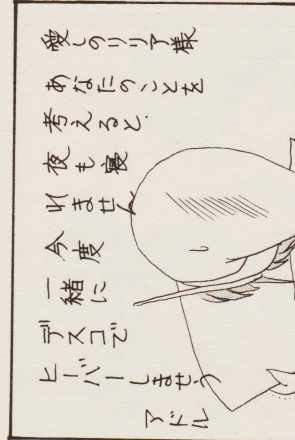 愛しのリリア様
あなたのことを
考えると、
夜も寝
れません
今度
一緒に
デスコで
ヒーバーしませう
アドル